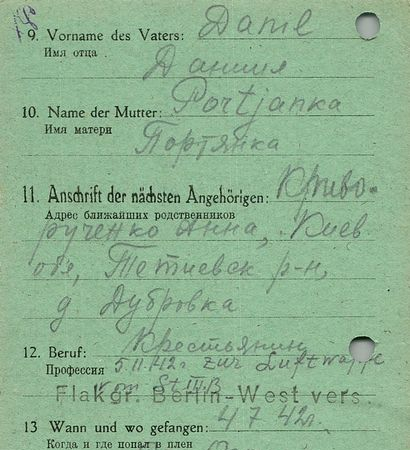 9. Vorname des Vaters: Danil
Имя отца Даниил
10. Name der Mutter: Portjanka
Имя матери Портянка
11. Anschrift der nächsten Angehörigen: Криво-
Адрес ближайших родственников
рученко Анна, Киев
обл, Тетиевск р-н,
д. Дубровка
12. Beruf: Крестьянин
Профессия 5.11.42. zur Luftwaffe
vom St III B
Flakgr. Berlin-West vers.
13 Wann und wo gefangen: 4 7 42г.
Когда и где попал в плен